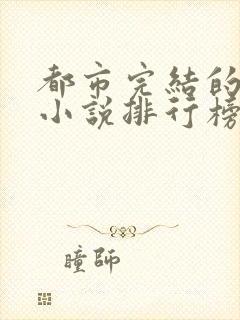 都市完結的
小說排行榜
瞳師